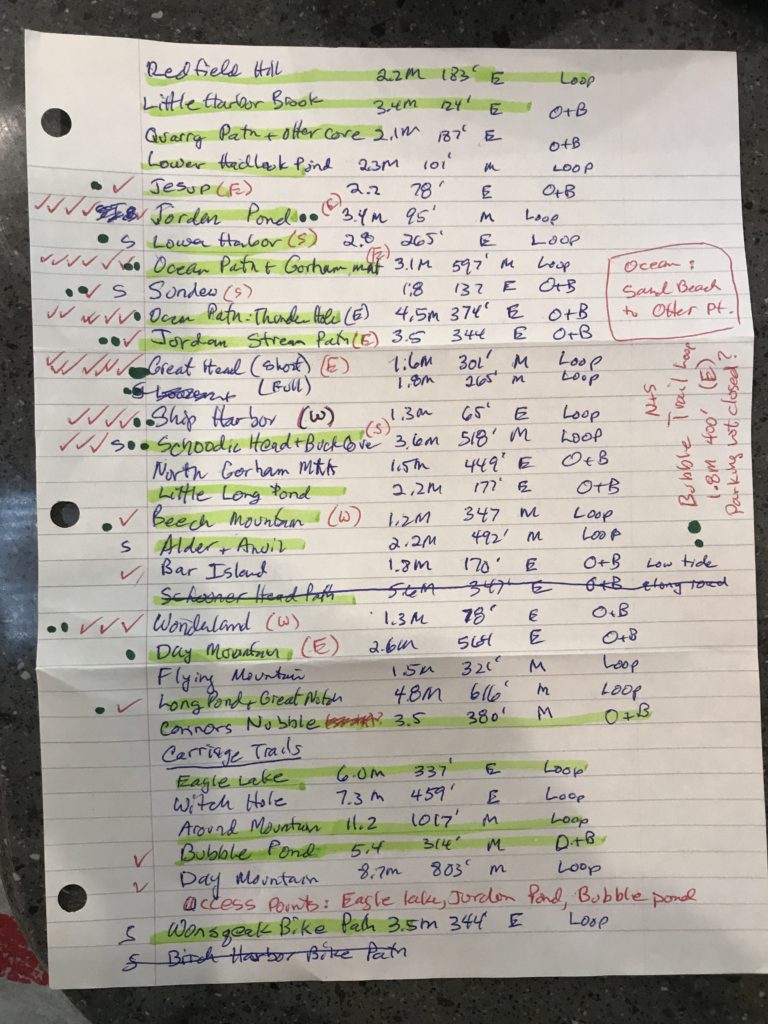 Redfield Hill 2.2M 183' E Loop
Little Harbor Brook 3.4M 124' E O+B
Quarry Path + Otter Cove 2.1M 187' E O+B
Lower Hadlock Pond 2.3M 101' M Loop
Jesup (E) 2.2 78' E O+B
Jordan Pond (E) 3.4M 95' M Loop
S Lower Harbor (S) 2.8 265' E Loop
Ocean Path + Gorham mnt (E) 3.1M 597' M Loop
S Sundew (S) 1.8 132 E O+B
Ocean Path: Thunder Hole (E) 4.5M 374' E O+B
Jordan Stream Path (E) 3.5 344 E O+B
Great Head (Short) (E) 1.6M 301' M Loop
(Full) 1.8M 265' M Loop
Ship Harbor (W) 1.3M 65' E Loop
S Schoodic Head + Buck Cove (S) 3.6M 518' M Loop
North Gorham Mtn 1.5M 449' E O+B
Little Long Pond 2.2M 177' E O+B
Beech Mountain (W) 1.2M 347 M Loop
S Alder + Anvil 2.2M 492' M Loop
Bar Island 1.8M 170' E O+B Low tide
Schooner Head Path 5.6M 347' E O+B along road
Wonderland (W) 1.3M 78' E O+B
Day Mountain (E) 2.6M E O+B
Flying Mountain 1.5M M Loop
Long Pond + Great Notch 4.8M 616' M Loop
Connors Nubble 3.5 380' M O+B
Carriage Trails
Eagle Lake 6.0M 337' E Loop
Witch Hole 7.3M 459' E Loop
Around Mountain 11.2 1017' M Loop
Bubble Pond 5.4 314' M O+B
Day Mountain 8.7M 803' M Loop
access Points: Eagle lake, Jordan Pond, Bubble pond
S Wonsqeak Bike Path 3.5M 344' E Loop
S Birch Harbor Bike Path
Ocean:
Sand Beach
to Otter Pt.
N+S
Bubble Trail Loop
1.8M 400' (E)
Parking lot closed?